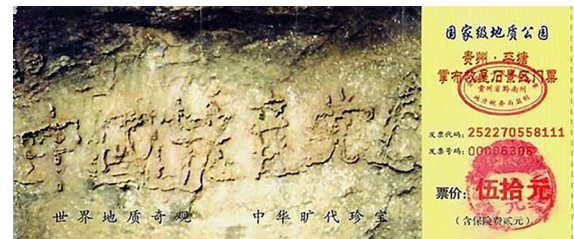 中國共産党亡
世界地质奇观 中华旷代珍宝
国家级地质公园
贵州·平塘
掌布藏字石景区门票
贵州省黔南州
地方税务局监制
发票代码:252270558111
发票号码:00006306
票价:伍拾元
(含保险费贰元)